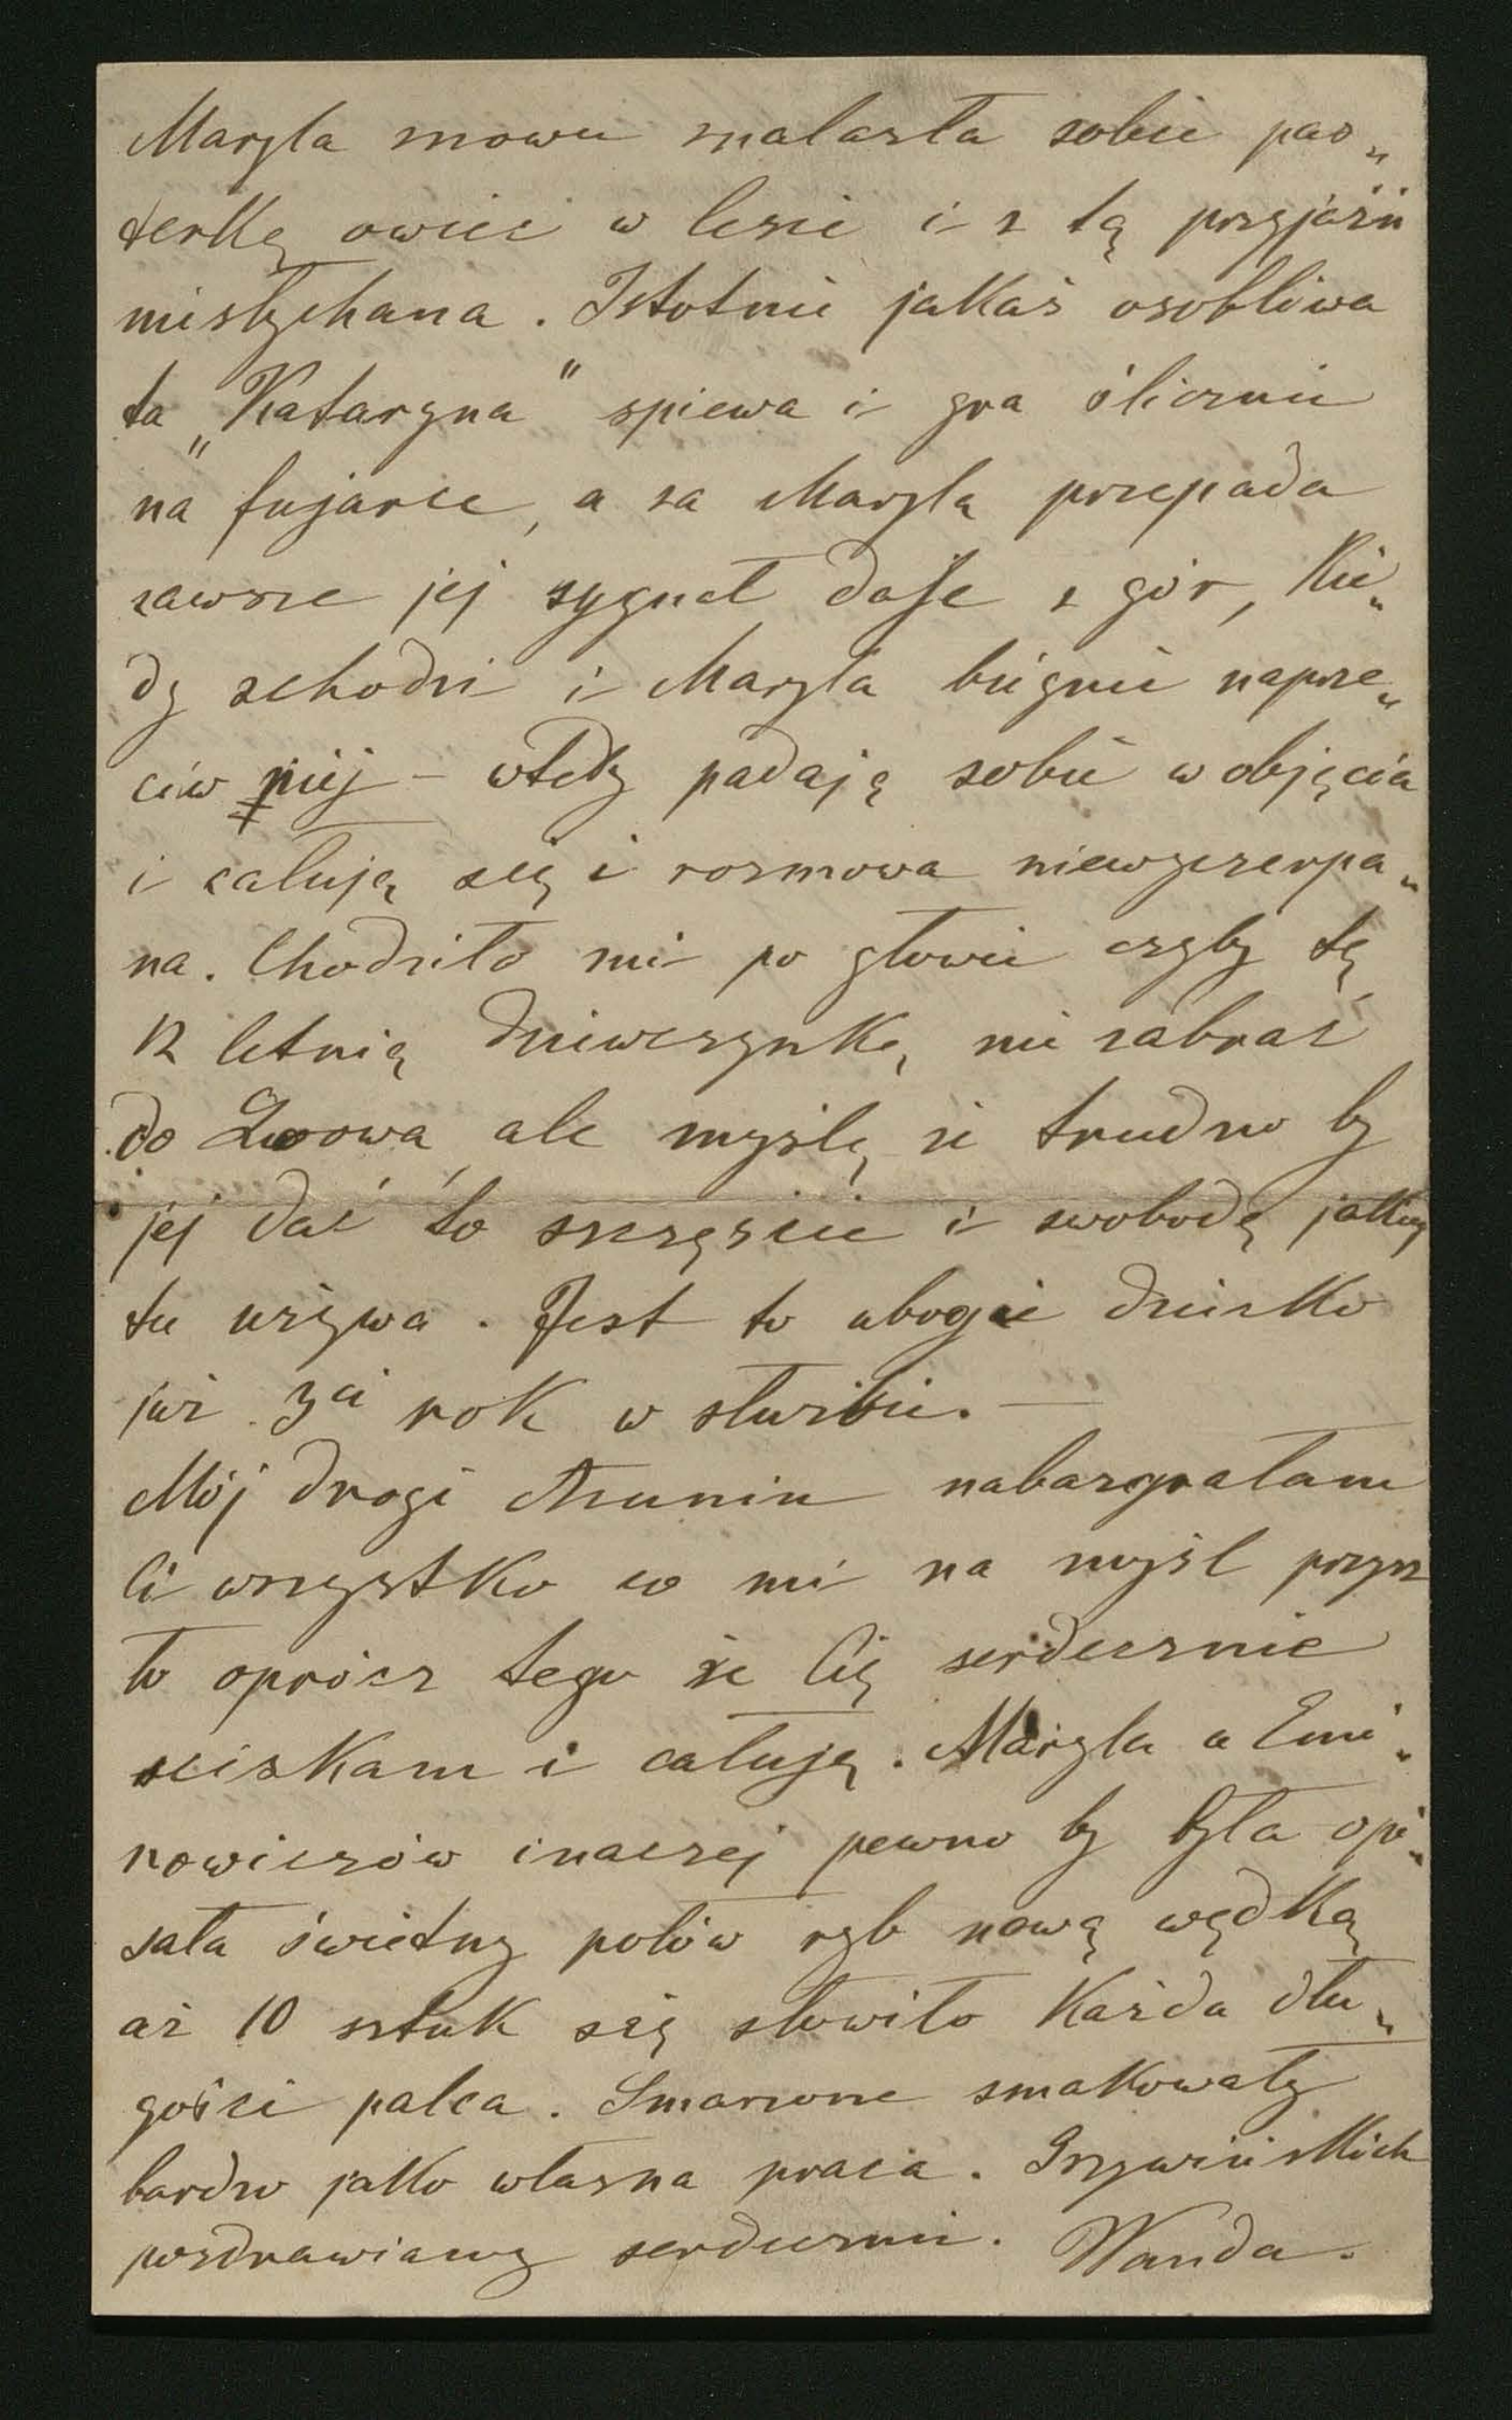 Maryla znowu znalazła sobie pas„
terkę owiec w lesie i z tą przyjaźń
niesłychana. Istotnie jakaś osobliwa
ta „Kataryna” spiewa i gra ślicznie
na fujarce, a za Marylą przepada
zawsze jej sygnał daje z gór, kie„
dy schodzi i Maryla biegnie naprze„
ciw niej – wtedy padają sobie w objęcia
i całują się i rozmowa niewyczerpa„
na. Chodziło mi po głowie czyby tę
12 letnią dziewczynkę nie zabrać
do Lwowa, ale myślę że trudno by
jej dać to szczęście i swobodę jakiej
tu używa. Jest to ubogie dziecko
już 3ci rok w służbie. —
Mój drogi nabazgrałam
Ci wszystko co mi na myśl przysz
ło oprócz tego że Cię serdecznie
sciskam i całuję. Maryla a Emi„
nowiczów inaczej pewno by była opi„
sała świetny połów ryb nową wędką
aż 10 sztuk się złowiło każda dłu„
gości palca. Smażone smakowały
bardzo jako własna praca.
pozdrawiamy serdecznie. Wanda.